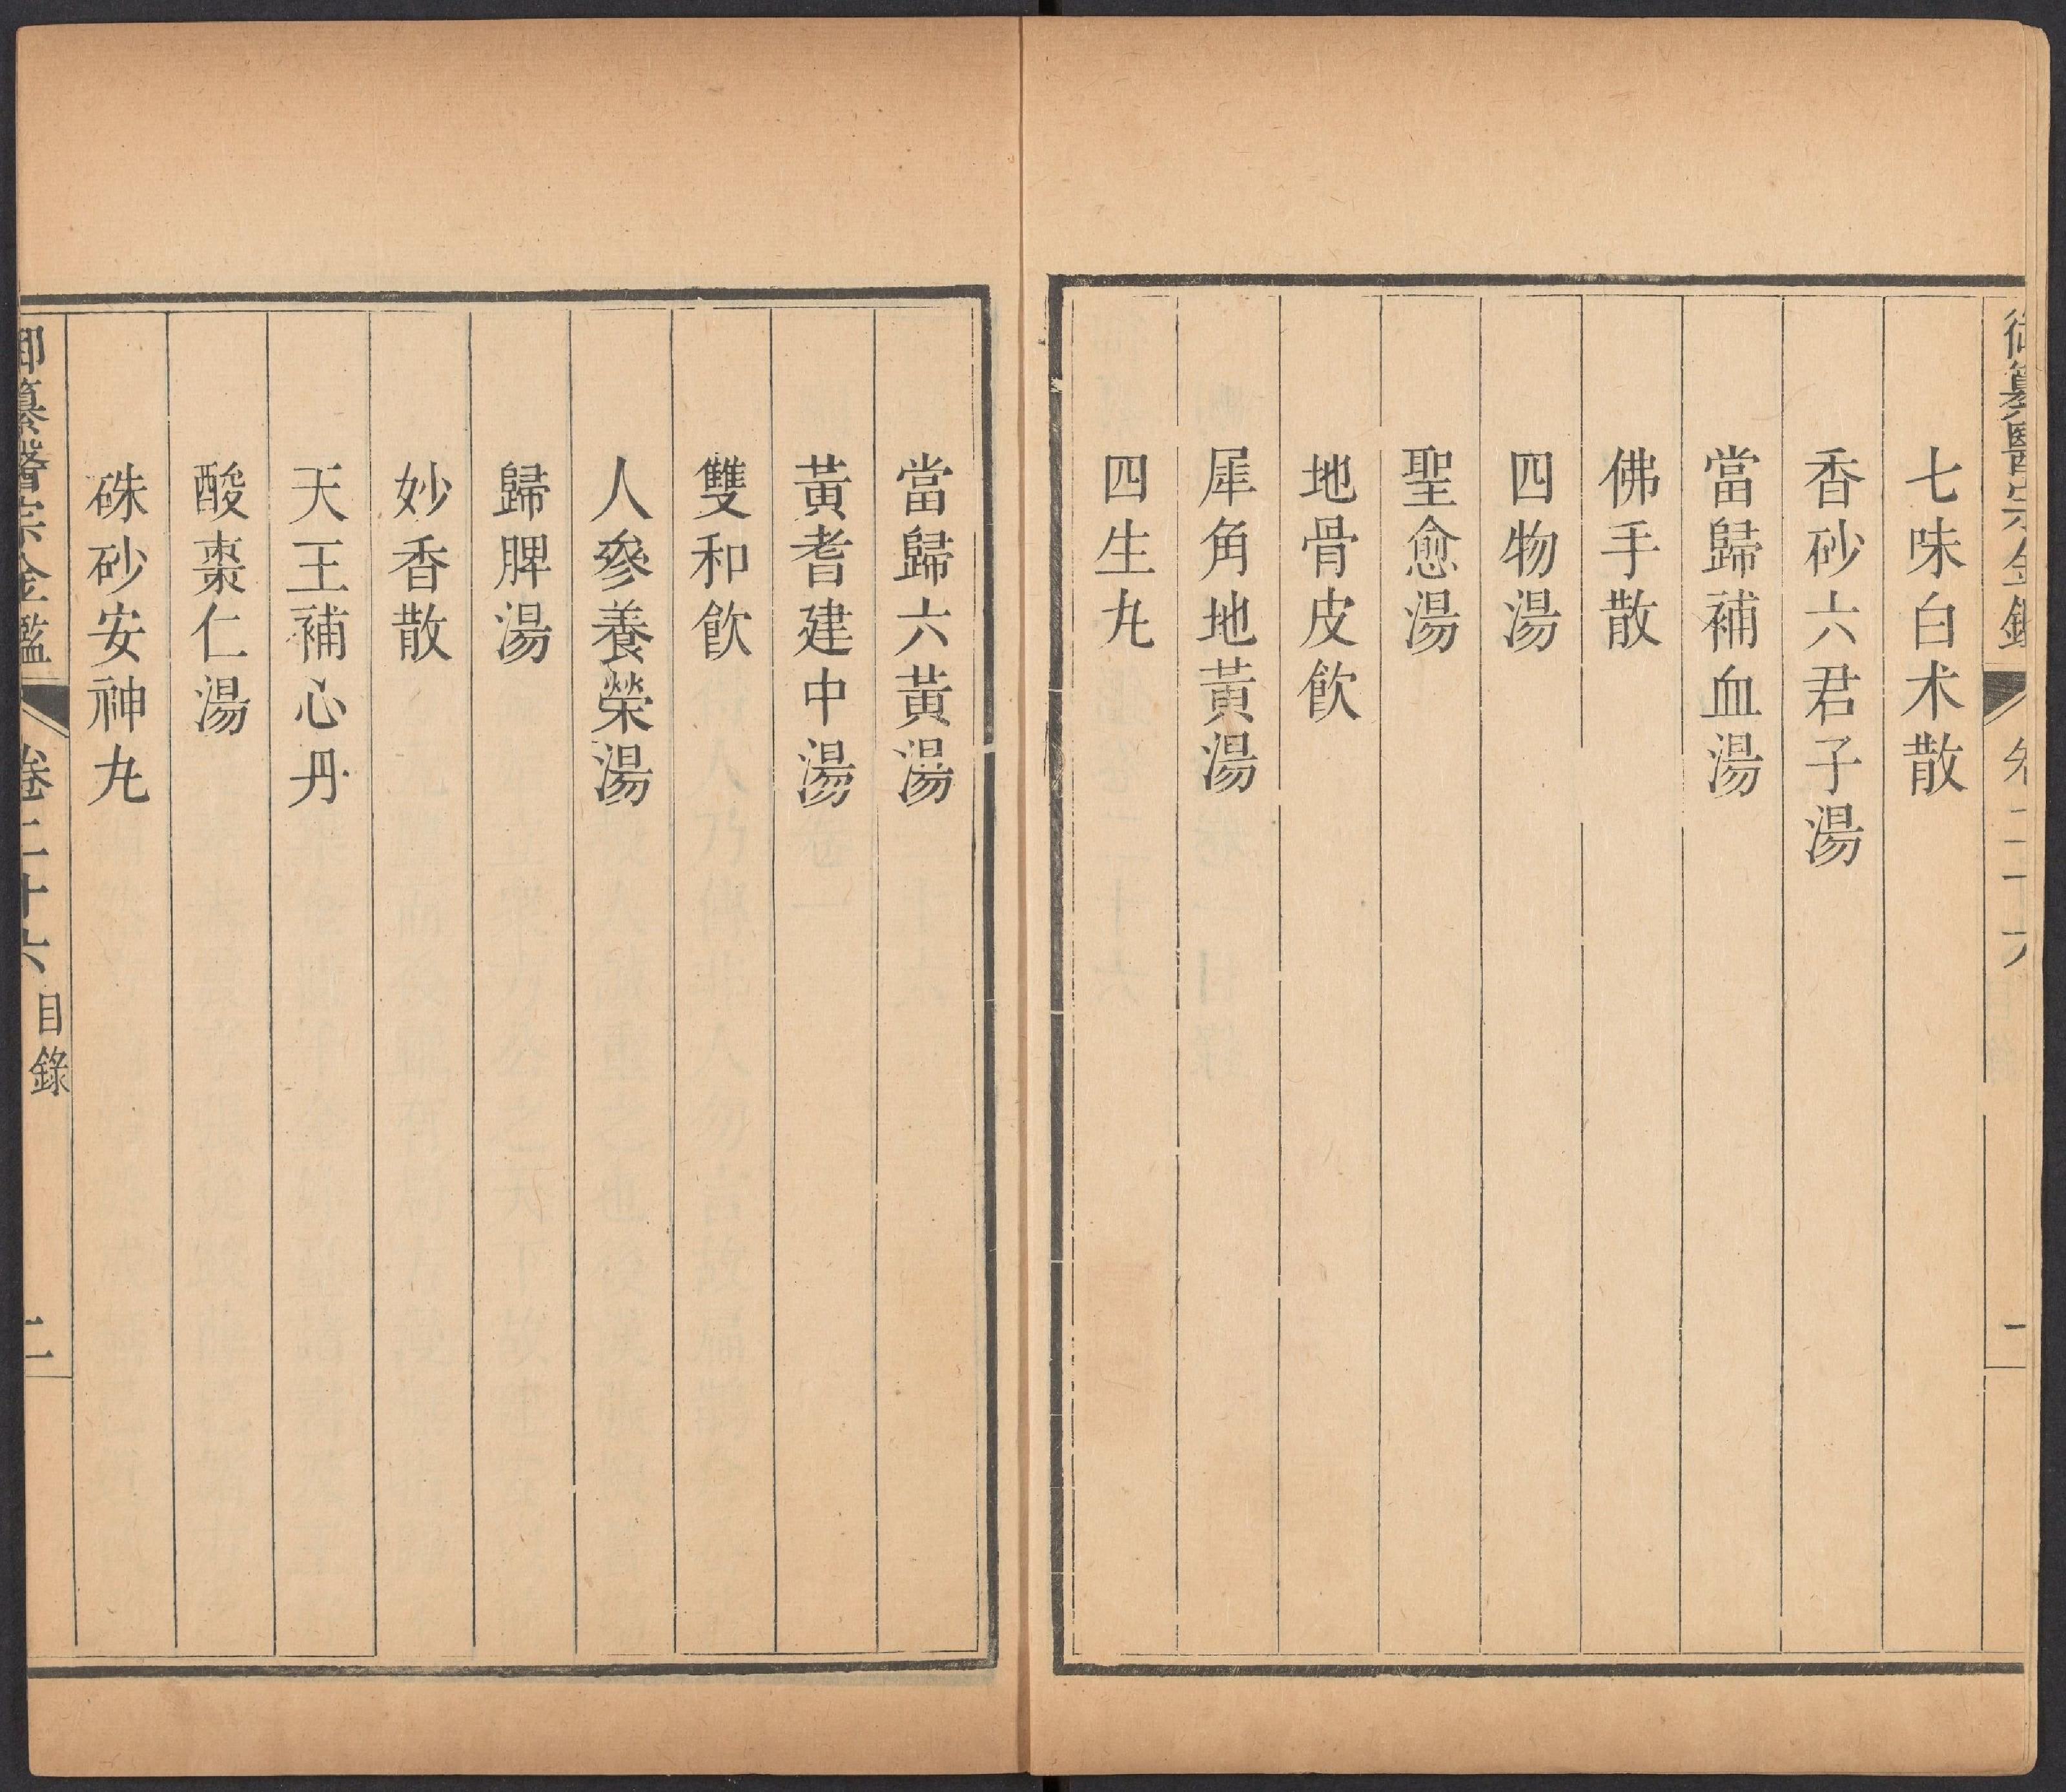 七味白术散
香砂六君子湯
當歸補血湯
佛手散
四物湯
聖愈湯
地骨皮飲
犀角地黃湯
四生丸
當歸六黃湯
黃耆建中湯
雙和飲
人參養榮湯
歸脾湯
妙香散
天王補心丹
酸棗仁湯
硃砂安神丸
御纂醫宗金鑑 卷二十六 目錄 二